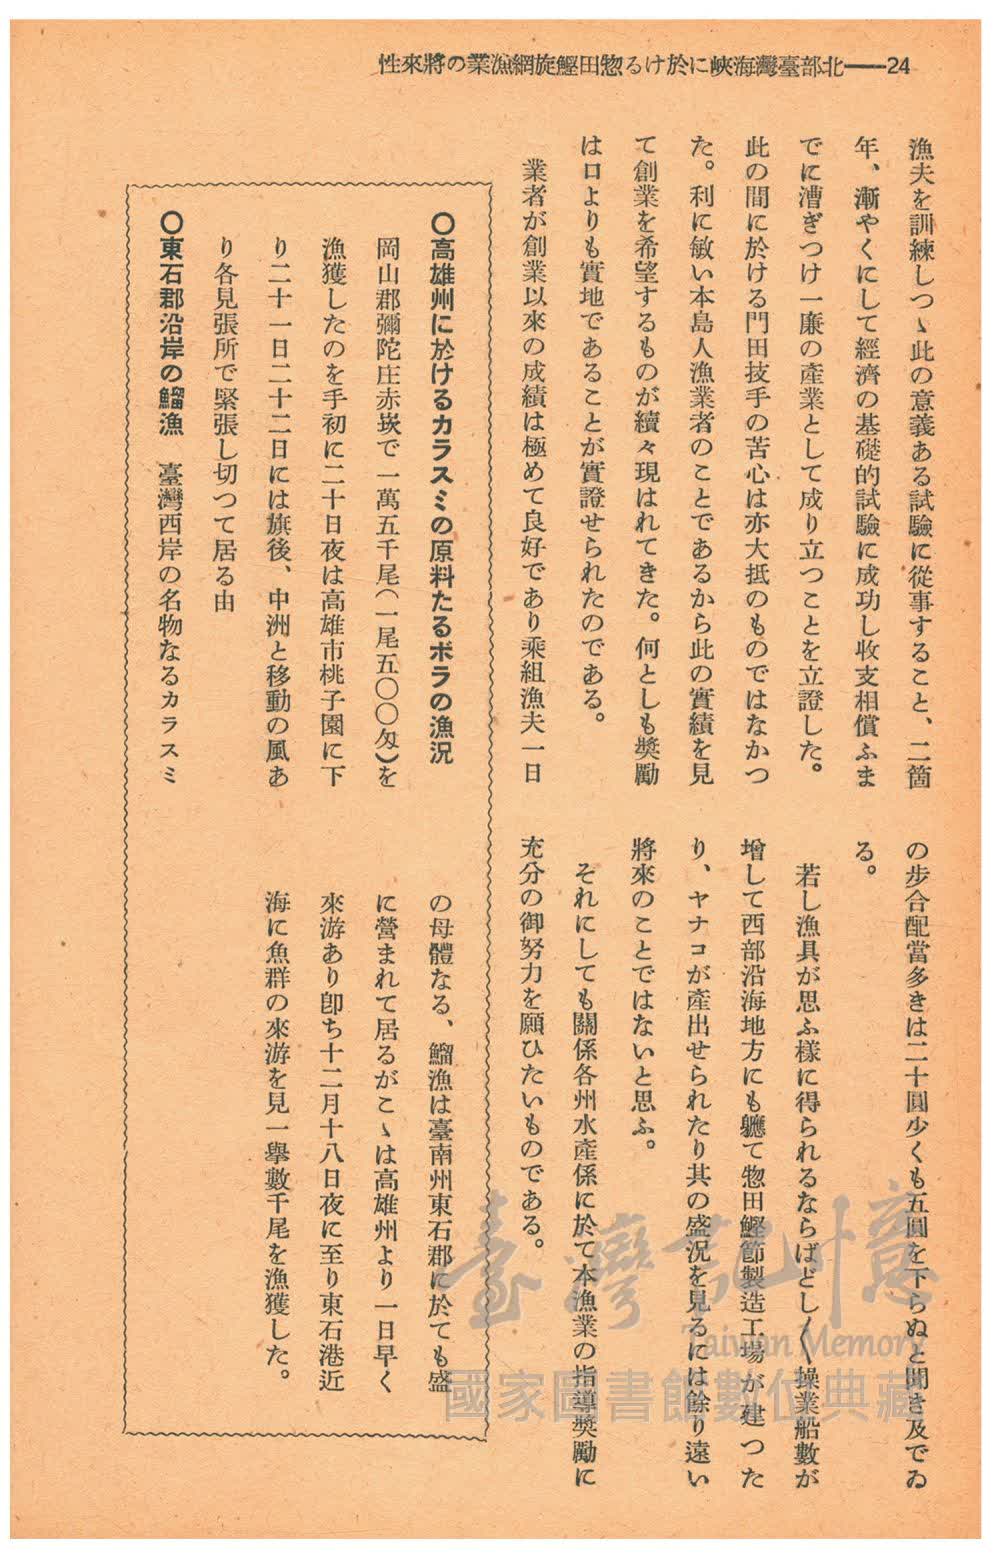 性來將の業漁網旋鰹田惣るけ於に峽海灣臺部北――24
漁夫を訓練しつゝ此の意義ある試驗に從事すること、二箇
年、漸やくにして經濟の基礎的試驗に成功し收支相償ふま
でに漕ぎつけ一廉の產業として成り立つことを立證した。
此の間に於ける門田技手の苦心は亦大抵のものではなかつ
た。利に敏い本島人漁業者のことであるから此の實績を見
て創業を希望するものが續々現はれてきた。何としも獎勵
は口よりも實地であることが實證せられたのである。
業者が創業以來の成績は極めて良好であり乘組漁夫一日
の步合配當多きは二十圓少くも五圓を下らぬと聞き及でゐ
る。
若し漁具が思ふ樣に得られるならばどし〳〵操業船數が
增して西部沿海地方にも軈て惣田鰹節製造工場が建つた
り、ヤナコが產出せられたり其の盛況を見るには餘り遠い
將來のことではないと思ふ。
それにしても關係各州水產係に於て本漁業の指導獎勵に
充分の御努力を願ひたいものである。
〇高雄州に於けるカラスミの原料たるボラの漁況
岡山郡彌陀庄赤崁で一萬五千尾(一尾五〇〇匁)を
漁獲したのを手初に二十日夜は高雄市桃子園に下
り二十一日二十二日には旗後、中洲と移動の風あ
り各見張所で緊張し切つて居る由
〇東石郡沿岸の鰡漁 臺灣西岸の名物なるカラスミ
の母體なる、鰡漁は臺南州東石郡に於ても盛
に營まれて居るがこゝは高雄州より一日早く
來游あり卽ち十二月十八日夜に至り東石港近
海に魚群の來游を見一擧數千尾を漁獲した。
臺灣記憶
Taiwan Memory
國家圖書館數位典藏